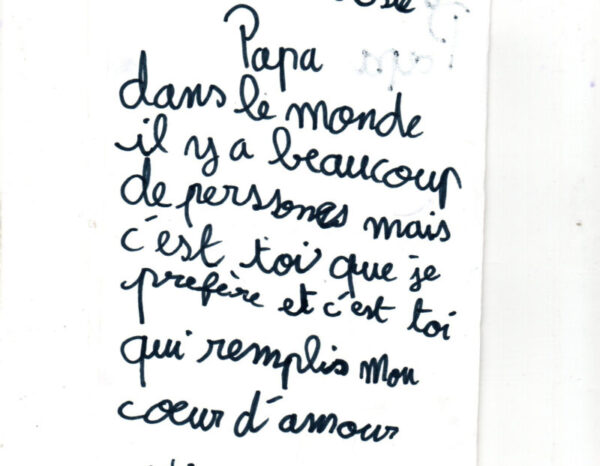 Papa
dans le monde
il y a beaucoup
de perssones mais
c'est toi que je
prefère et c'est toi
qui remplis mon
cœur d'amour